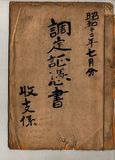 昭和十三年七月分
調定証憑書
收支係